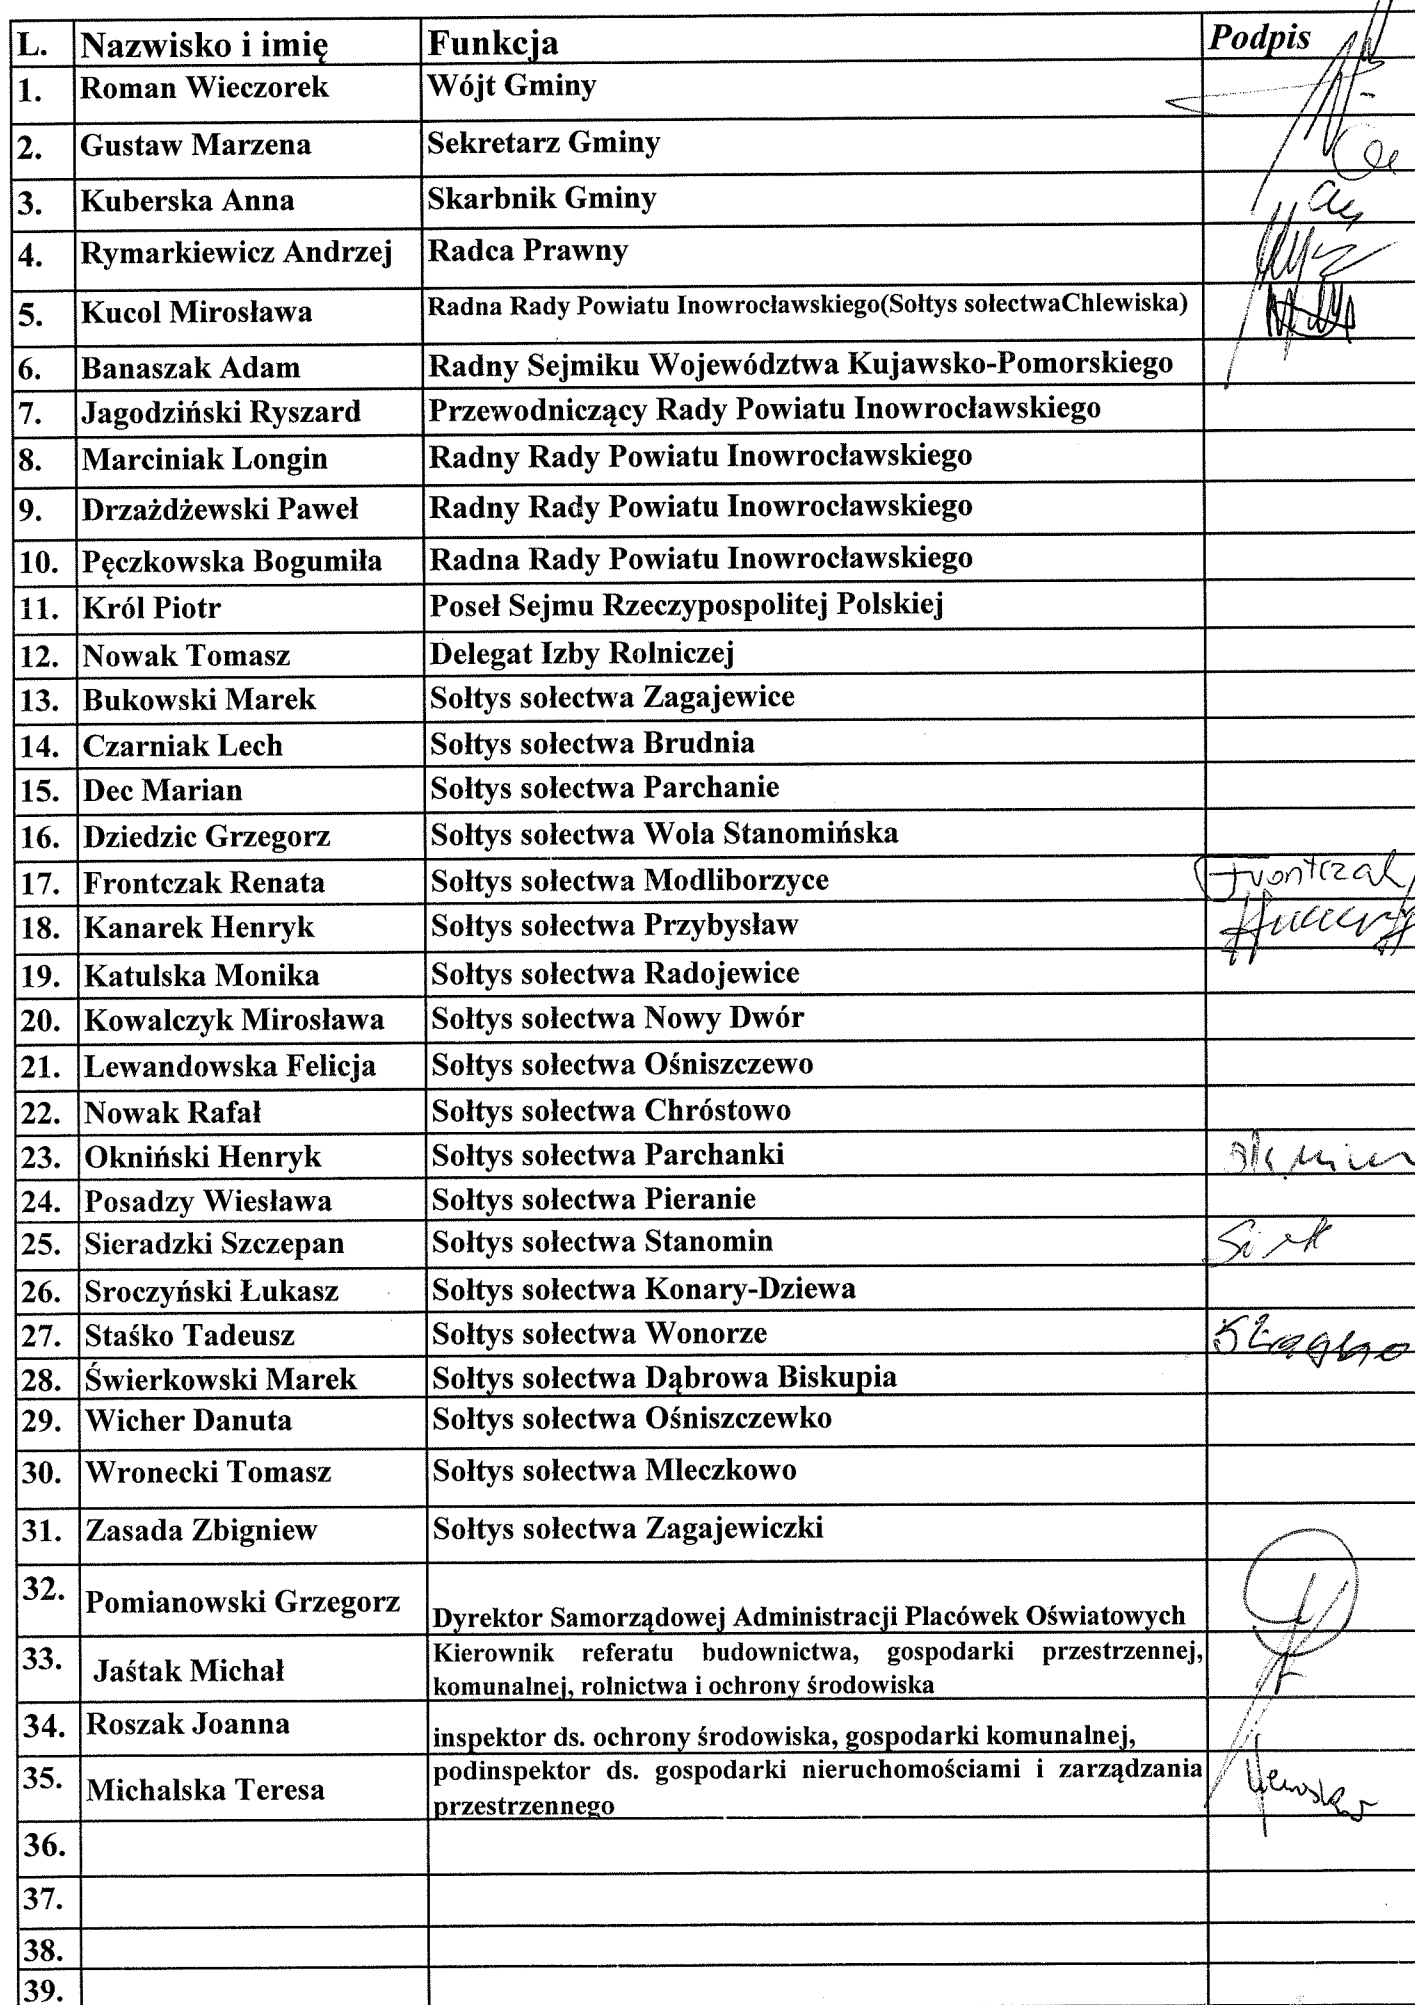 L. Nazwisko i imię Funkcja Podpis
1. Roman Wieczorek Wójt Gminy
2. Gustaw Marzena Sekretarz Gminy
3. Kuberska Anna Skarbnik Gminy
4. Rymarkiewicz Andrzej Radca Prawny
5. Kucol Mirosława Radna Rady Powiatu Inowrocławskiego(Sołtys sołectwaChlewiska)
6. Banaszak Adam Radny Sejmiku Województwa Kujawsko-Pomorskiego
7. Jagodziński Ryszard Przewodniczący Rady Powiatu Inowrocławskiego
8. Marciniak Longin Radny Rady Powiatu Inowrocławskiego
9. Drzażdżewski Paweł Radny Rady Powiatu Inowrocławskiego
10. Pęczkowska Bogumiła Radna Rady Powiatu Inowrocławskiego
11. Król Piotr Poseł Sejmu Rzeczypospolitej Polskiej
12. Nowak Tomasz Delegat Izby Rolniczej
13. Bukowski Marek Sołtys sołectwa Zagajewice
14. Czarniak Lech Sołtys sołectwa Brudnia
15. Dec Marian Sołtys sołectwa Parchanie
16. Dziedzic Grzegorz Sołtys sołectwa Wola Stanomińska
17. Frontczak Renata Sołtys sołectwa Modliborzyce
18. Kanarek Henryk Sołtys sołectwa Przybysław
19. Katulska Monika Sołtys sołectwa Radojewice
20. Kowalczyk Mirosława Sołtys sołectwa Nowy Dwór
21. Lewandowska Felicja Sołtys sołectwa Ośniszczewo
22. Nowak Rafał Sołtys sołectwa Chróstowo
23. Okniński Henryk Sołtys sołectwa Parchanki
24. Posadzy Wiesława Sołtys sołectwa Pieranie
25. Sieradzki Szczepan Sołtys sołectwa Stanomin
26. Sroczyński Łukasz Sołtys sołectwa Konary-Dziewa
27. Staśko Tadeusz Sołtys sołectwa Wonorze
28. Świerkowski Marek Sołtys sołectwa Dąbrowa Biskupia
29. Wicher Danuta Sołtys sołectwa Ośniszczewko
30. Wronecki Tomasz Sołtys sołectwa Mleczkowo
31. Zasada Zbigniew Sołtys sołectwa Zagajewiczki
32. Pomianowski Grzegorz Dyrektor Samorządowej Administracji Placówek Oświatowych
33. Jaśtak Michał Kierownik referatu budownictwa, gospodarki przestrzennej,
komunalnej, rolnictwa i ochrony środowiska
34. Roszak Joanna inspektor ds. ochrony środowiska, gospodarki komunalnej,
35. Michalska Teresa podinspektor ds. gospodarki nieruchomościami i zarządzania
przestrzennego
36.
37.
38.
39.